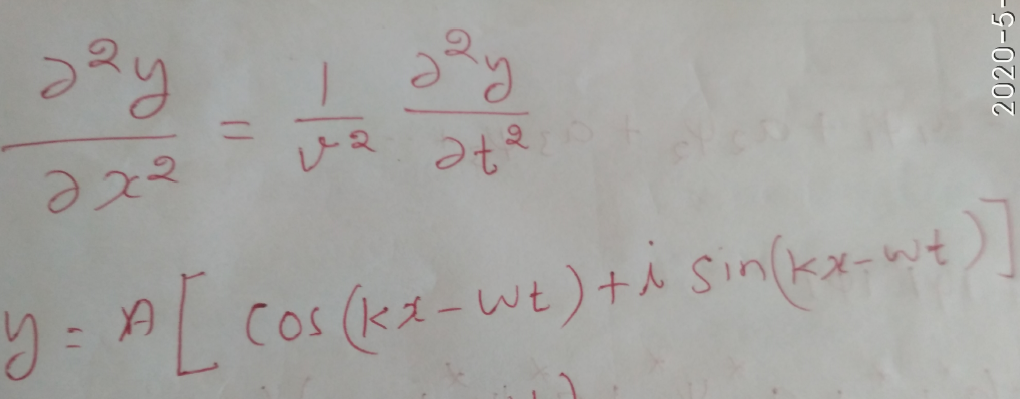 ∂²y/∂x² = 1/v² ∂²y/∂t²
y = A [ cos(kx - wt) + i sin(kx - wt) ]
2020-5-